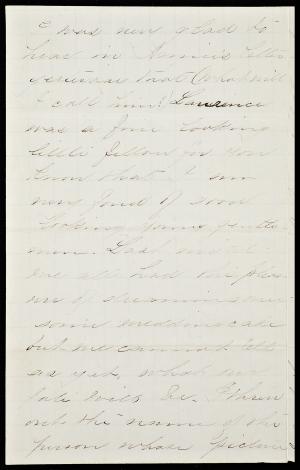 I was very glad to
hear in Annie's letter
yesterday that (what will
I call him?) Lawrence
was a fine looking
little fellow for you
know that I am
very fond of good
looking young gentle-
men. Last night
we all had the pleas-
ure of dreaming over
some wedding cake
but we cannot tell
as yet, what our
fate will be. I threw
out the name of the
person whose picture